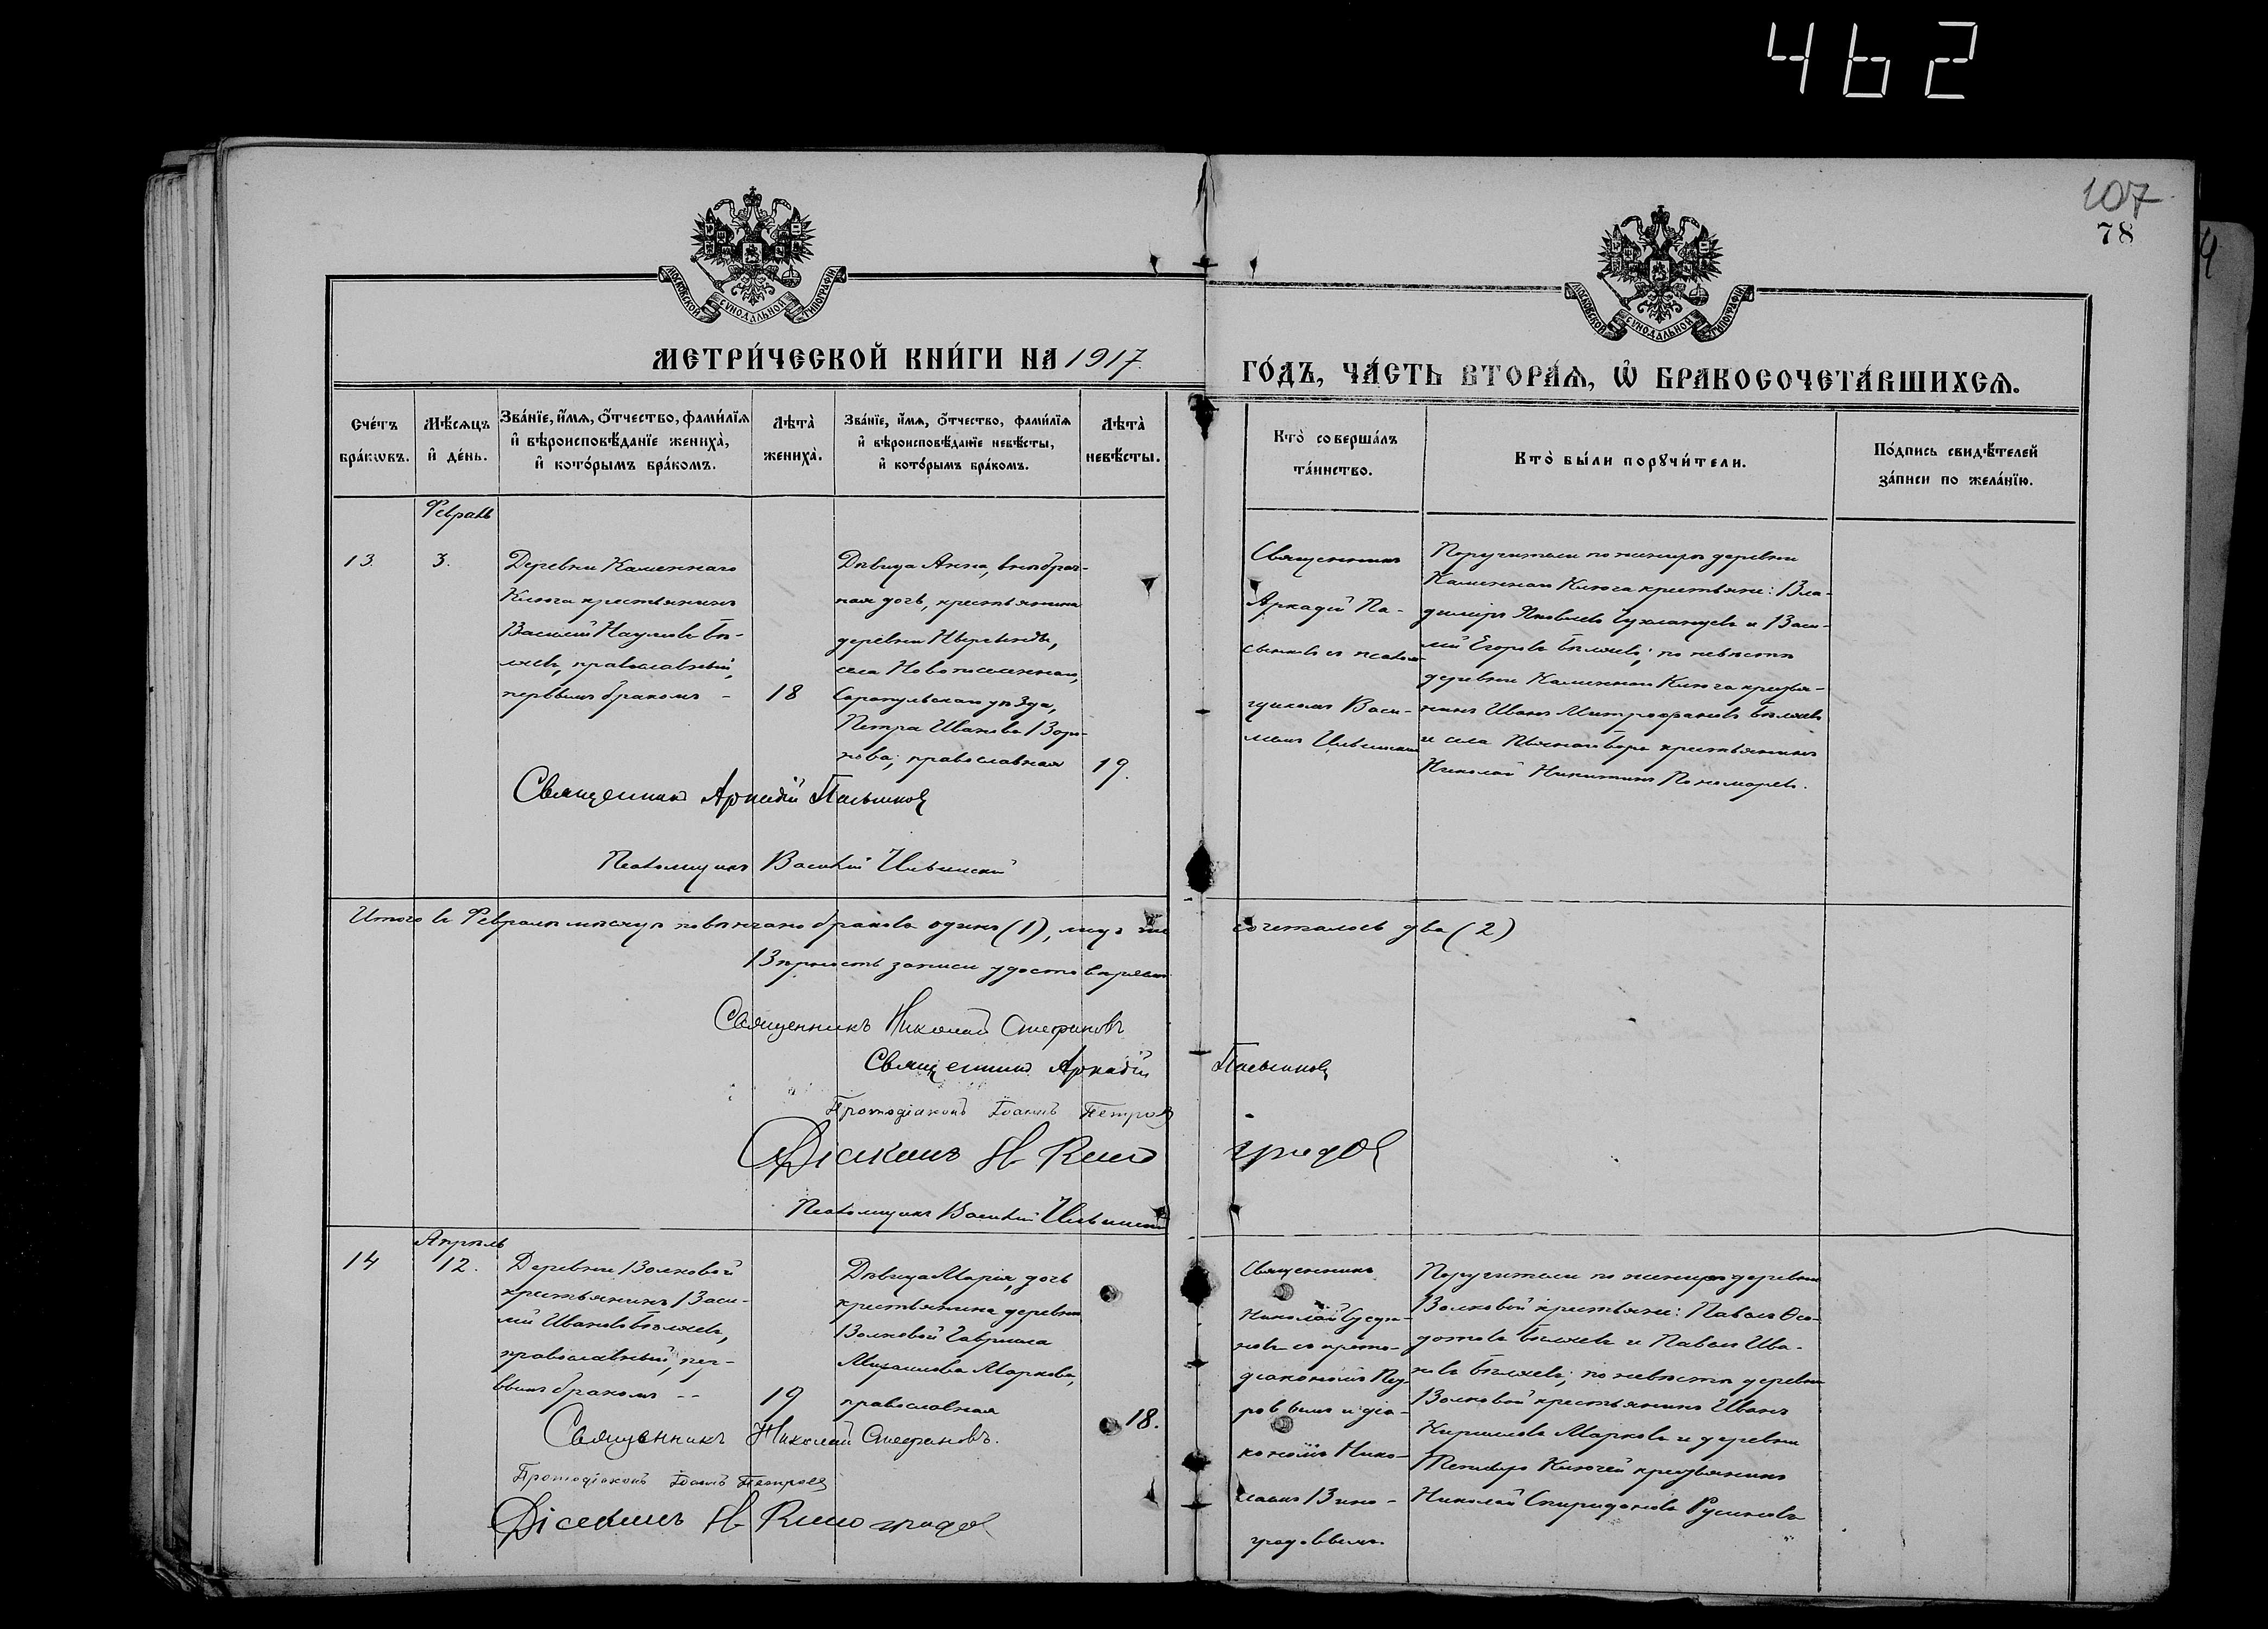 462
107
78
МОСКОВСКОЙ СѴНОДАЛЬНОЙ ТИПОГРАФІИ
МОСКОВСКОЙ СѴНОДАЛЬНОЙ ТИПОГРАФІИ
МЕТРИ́ЧЕСКОЙ КНИ́ГИ НА 1917
ГО́ДЪ, ЧА́СТЬ ВТОРА́Ѧ, Ѡ БРАКОСОЧЕТА́ВШИХСѦ.
Сче́тъ
бра́кѡвъ.
Мѣ́сѧцъ
и҆ де́нь.
Зва́нїе, и҆́мѧ, ѻ҆́тчество, фами́лїѧ
и҆ вѣроисповѣ́данїе жениха̀,
и҆ кото́рымъ бра́комъ.
Лѣта̀
жениха̀.
Зва́нїе, и҆́мѧ, ѻ҆́тчество, фами́лїѧ
и҆ вѣроисповѣ́данїе невѣ́сты,
и҆ кото́рымъ бра́комъ.
Лѣта̀
невѣ́сты.
Кто̀ соверша́лъ
та́инство.
Кто̀ бы́ли порꙋчи́тели.
По́дпись свидѣ́телей
за́писи по жела́нїю.
Февраль
13.
3.
Деревни Каменнаго
Ключа крестьянинъ
Василій Наумовъ Бѣ-
ляевъ, православный,
первымъ бракомъ -
18
Дѣвица Анна, внѣбрач-
ная дочь, крестьянина
деревни
села Новопоселеннаго,
Сарапульскаго уѣзда,
Петра Иванова Воро-
нова; православная
19.
Священникъ
Аркадій Па-
сынковъ съ псалом-
щикомъ Васи-
ліемъ Ильинскимъ
Поручители по женихѣ деревни
Каменнаго Ключа крестьяне: Вла-
диміръ Яковлевъ Чухланцевъ и Васи-
лій Егоровъ Бѣляевъ; по невѣстѣ
деревни Каменнаго Ключа крестья-
нинъ Иванъ Митрофановъ Бѣляевъ
и села Пьянаго Бора крестьянинъ
Николай Никитинъ Пономаревъ.
Священникъ Аркадій Пасынковъ
Псаломщикъ Василій Ильинскій
Итого въ Февралѣ мѣсяцѣ повѣнчано браковъ одинъ (1), лицъ же
сочеталось два (2)
Вѣрность записи удостовѣряемъ
Священникъ Николай Стефановъ
Священникъ Аркадій Пасынковъ
Протодіаконъ Іоаннъ Петровъ
Діаконъ Н. Виноградовъ
Псаломщикъ Василій Ильинскій
Апрѣль
14
12.
Деревни Волковой
крестьянинъ Васи-
лій Ивановъ Бѣляевъ,
православный, пер-
вымъ бракомъ --
19
Дѣвица Марія, дочь
крестьянина деревни
Волковой Гавріила
Михаилова Маркова,
православная
18.
Священникъ
Николай Стефа-
новъ съ прото-
діакономъ Пет-
ровымъ и діа-
кономъ Нико-
лаемъ Вино-
градовымъ.
Поручители по женихѣ деревни
Волковой крестьяне: Павелъ Ѳео-
дотовъ Бѣляевъ и Павелъ Ива-
новъ Бѣляевъ; по невѣстѣ деревни
Волковой крестьянинъ Иванъ
Кирилловъ Марковъ и деревни
Ключей крестьянинъ
Николай Спиридоновъ Русиновъ
Священникъ Николай Стефановъ.
Протодіаконъ Іоаннъ Петровъ
Діаконъ Н. Виноградовъ